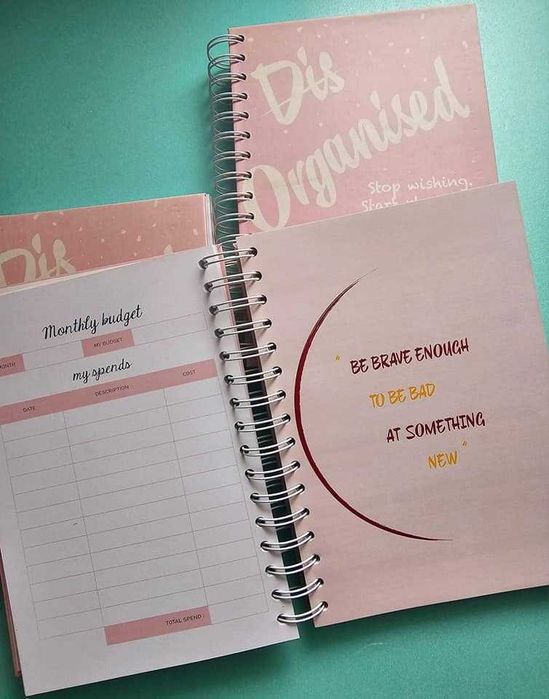 Dis
Organised
Stop wishing.
Dis
Monthly budget
MONTH
MY BUDGET
my spends
DATE
DESCRIPTION
COST
TOTAL SPEND
" BE BRAVE ENOUGH
TO BE BAD
AT SOMETHING
NEW "